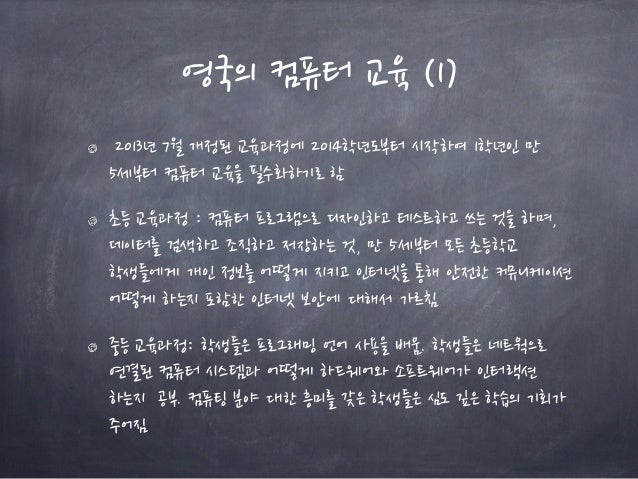 영국의 컴퓨터 교육 (1)
2013년 7월 개정된 교육과정에 2014학년도부터 시작하여 1학년인 만
5세부터 컴퓨터 교육을 필수화하기로 함
초등 교육과정 : 컴퓨터 프로그램으로 디자인하고 테스트하고 쓰는 것을 하며,
데이터를 검색하고 조직하고 저장하는 것, 만 5세부터 모든 초등학교
학생들에게 개인 정보를 어떻게 지키고 인터넷을 통해 안전한 커뮤니케이션
어떻게 하는지 포함한 인터넷 보안에 대해서 가르침
중등 교육과정: 학생들은 프로그래밍 언어 사용을 배움. 학생들은 네트웍으로
연결된 컴퓨터 시스템과 어떻게 하드웨어와 소프트웨어가 인터랙션
하는지 공부. 컴퓨팅 분야 대한 흥미를 갖은 학생들은 심도 깊은 학습의 기회가
주어짐